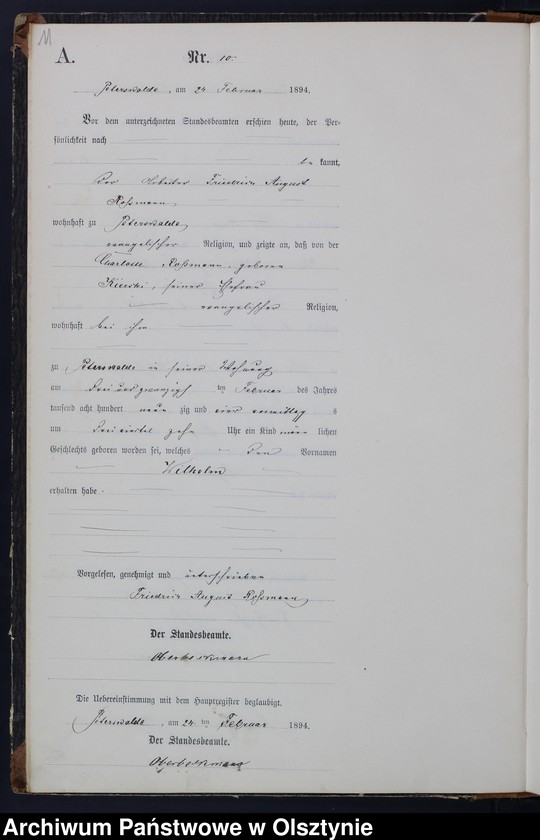 11
A.
Nr. 10.
Peterswalde, am 24 Februar 1894.
Vor dem unterzeichneten Standesbeamten erschien heute, der Per-
sönlichkeit nach
be kannt,
der Arbeiter Friedrich August
Roßmann,
wohnhaft zu Peterswalde,
evangelischer Religion, und zeigte an, daß von der
Charlotte Roßmann, geborene
seiner Ehefrau
evangelischer Religion,
wohnhaft bei ihm
zu Peterswalde in seiner Wohnung
am drei und zwanzigsten Februar des Jahres
tausend acht hundert neun zig und vier vormittag s
um dreiviertel zehn Uhr ein Kind männ lichen
Geschlechts geboren worden sei, welches den Vornamen
Wilhelm
erhalten habe.
Vorgelesen, genehmigt und unterschrieben
Friedrich August Roßmann
Der Standesbeamte.
Die Uebereinstimmung mit dem Hauptregister beglaubigt.
Peterswalde, am 24 ten Februar 1894.
Der Standesbeamte.
Archiwum Państwowe w Olsztynie